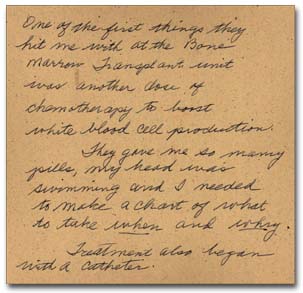 One of the first things they
hit me with at the Bone
Marrow Transplant unit
was another dose of
chemotherapy to boost
white blood cell production.
They gave me so many
pills, my head was
swimming and I needed
to make a chart of what
to take when and why.
Treatment also began
with a catheter.